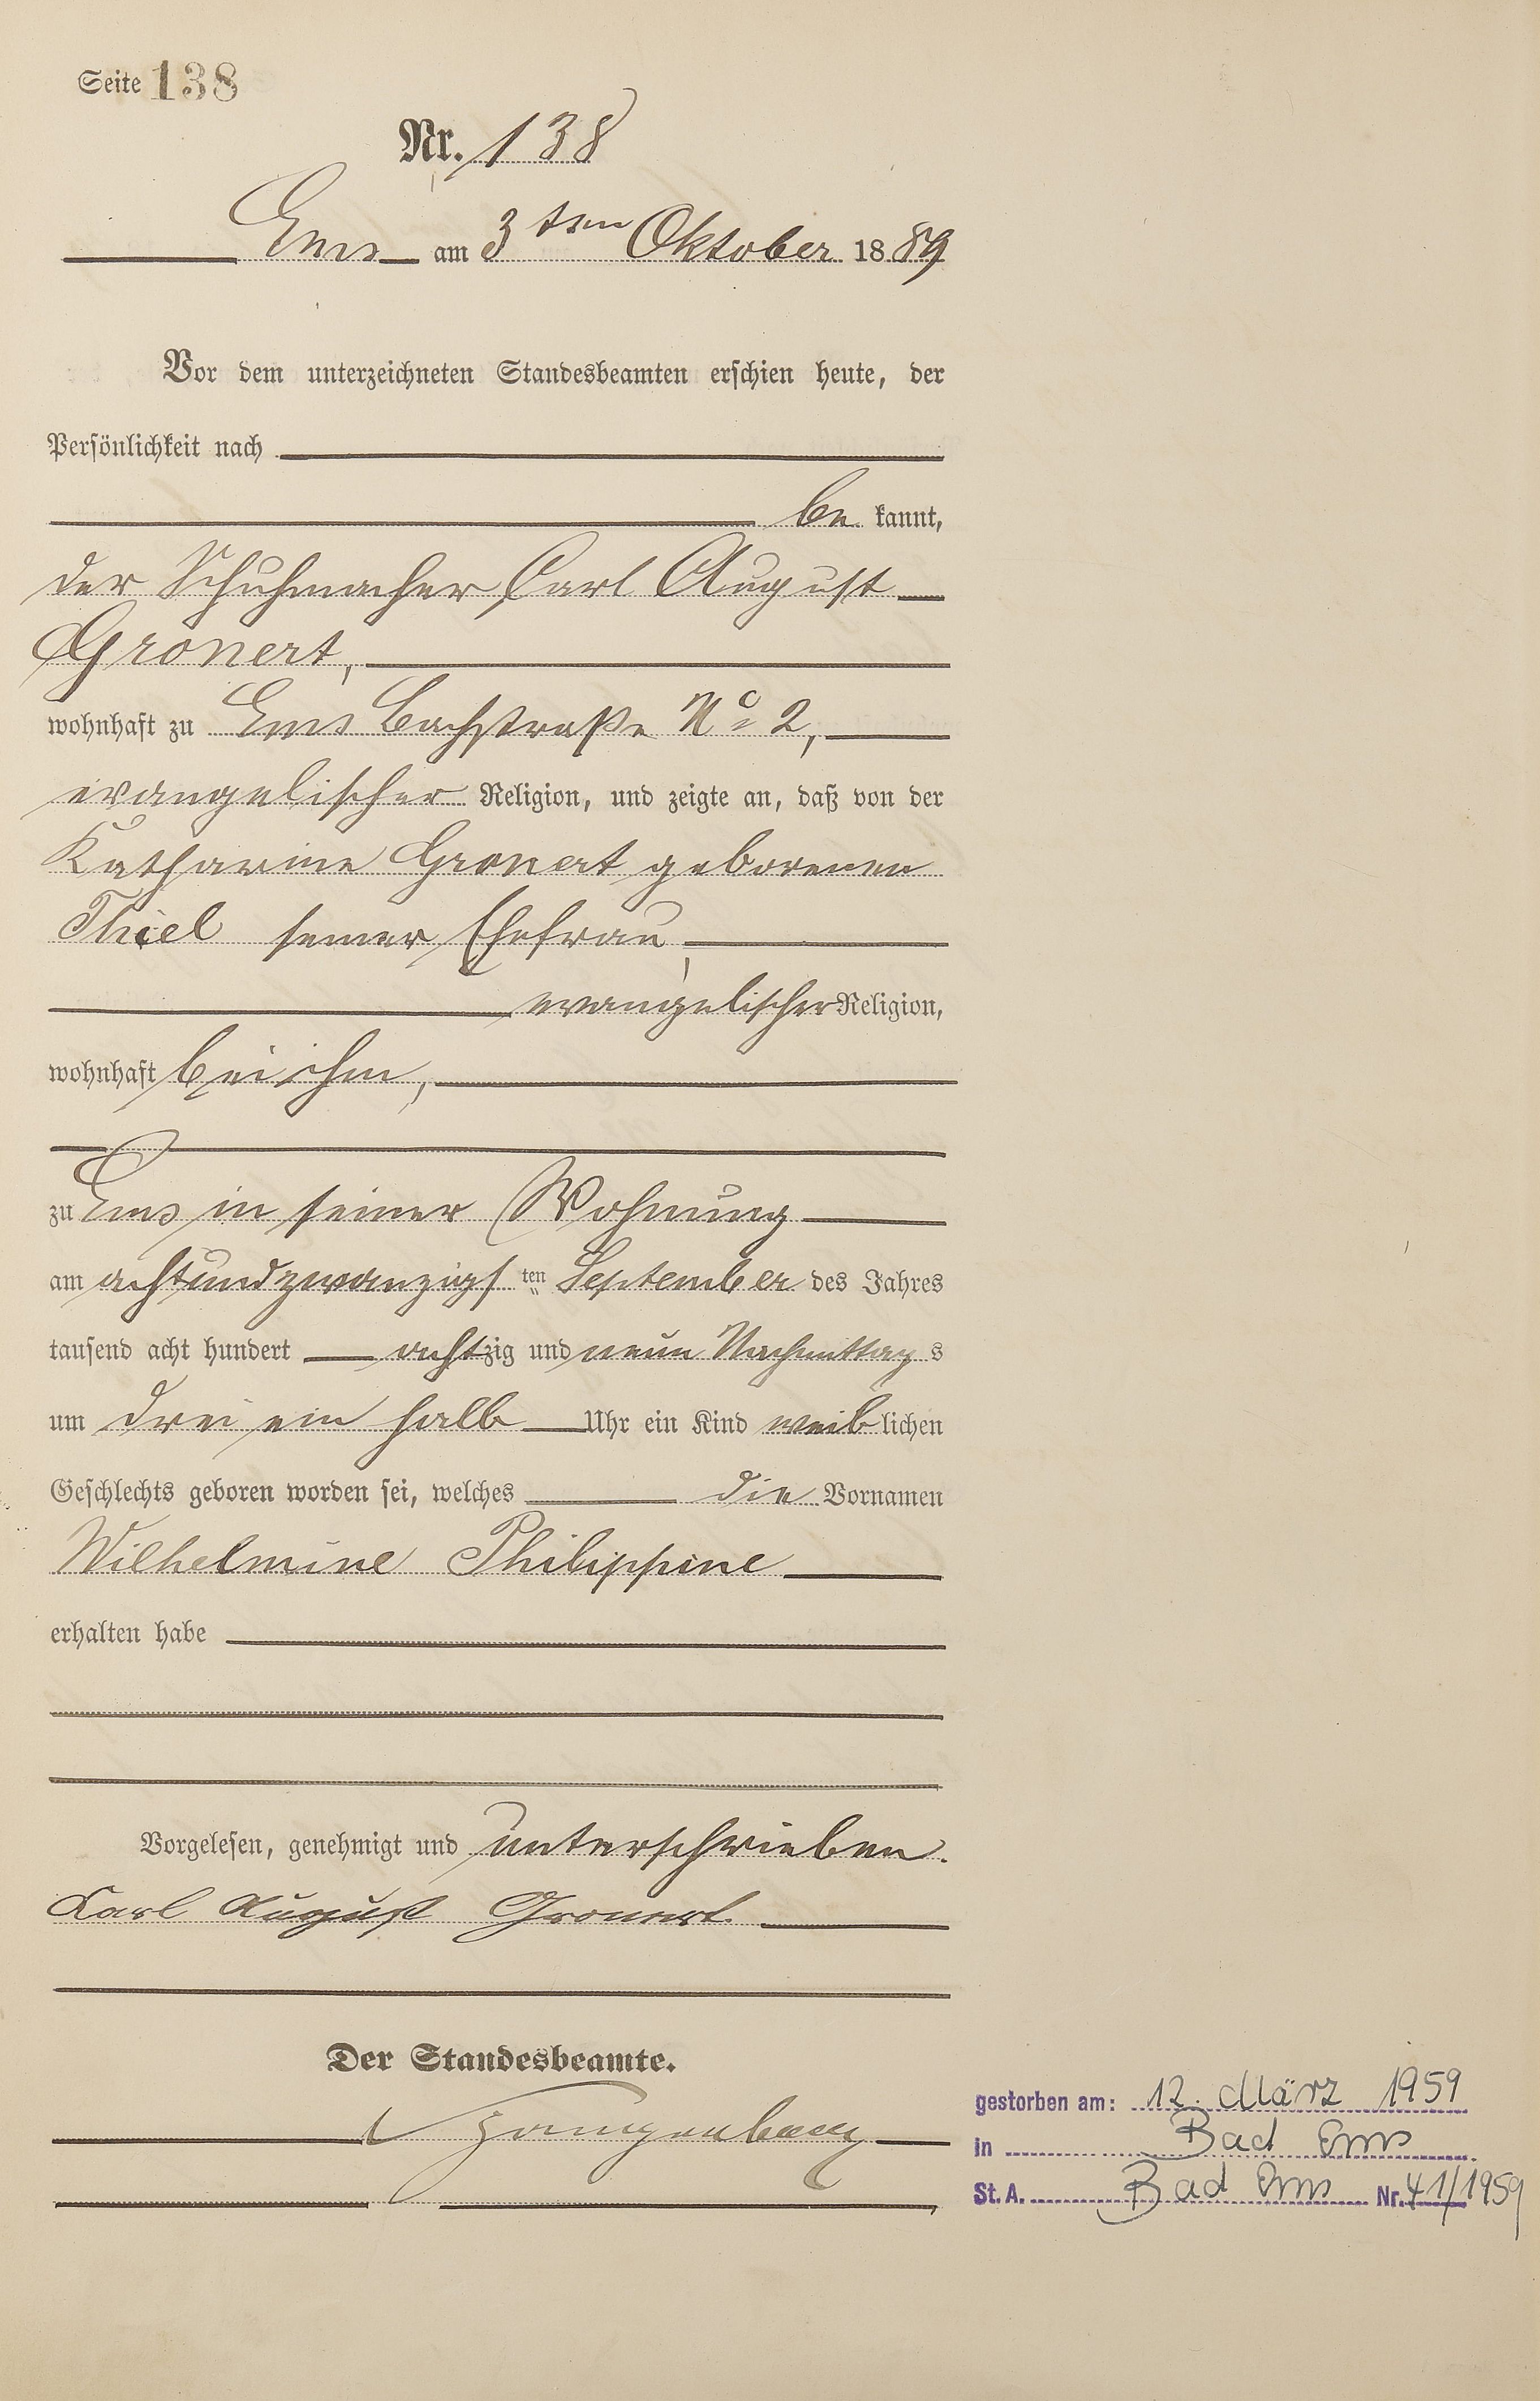 Seite 138
Nr. 138
Ems am 3ten Oktober 1889
Vor dem unterzeichneten Standesbeamten erschien heute, der
Persönlichkeit nach
be kannt,
der Schuhmacher Carl August
Gronert,
wohnhaft zu Ems Bachstraße No 2,
evangelischer Religion, und zeigte an, daß von der
Katharine Gronert geborenen
Thiel seiner Ehefrau,
evangelischer Religion,
wohnhaft bei ihm,
zu Ems in seiner Wohnung
am achtundzwanzigs ten September des Jahres
tausend acht hundert achtzig und neun Nachmittags
um drei ein halb Uhr ein Kind weiblichen
Geschlechts geboren worden sei, welches die Vornamen
Wilhelmine Philippine
erhalten habe
Vorgelesen, genehmigt und unterschrieben.
Karl August Gronert.
Der Standesbeamte.
gestorben am: 12. März 1959
in Bad Ems
St. A. Bad Ems Nr. 41/1959